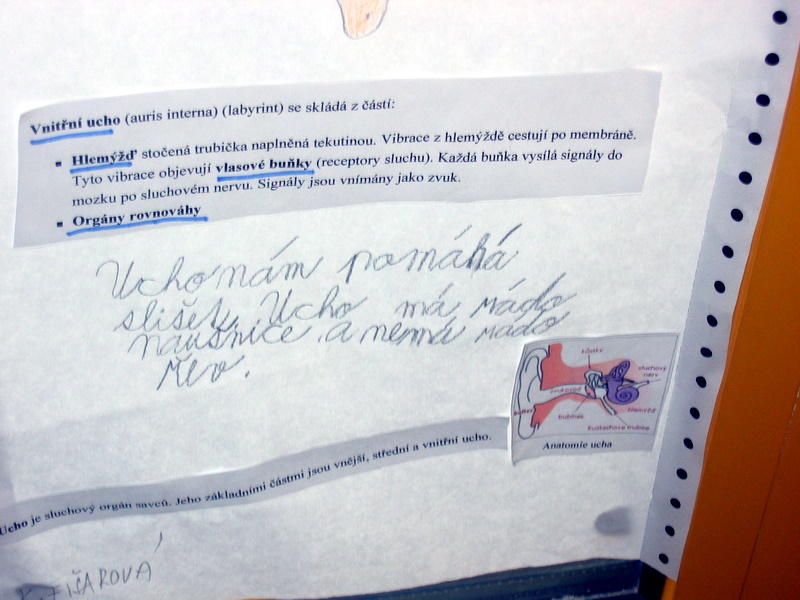 Vnitřní ucho (auris interna) (labyrint) se skládá z částí:
Hlemýžď stočená trubička naplněná tekutinou. Vibrace z hlemýždě cestují po membráně.
Tyto vibrace objevují vlasové buňky (receptory sluchu). Každá buňka vysílá signály do
mozku po sluchovém nervu. Signály jsou vnímány jako zvuk.
Orgány rovnováhy
Ucho nám pomáhá
slišet. Ucho má rádo
naušnice a nemá rádo
řev.
kůstky
sluchový
nerv
zvukovod
boltec
bubínek
hlemýžď
Eustachova trubice
Anatomie ucha
Ucho je sluchový orgán savců. Jeho základními částmi jsou vnější, střední a vnitřní ucho.